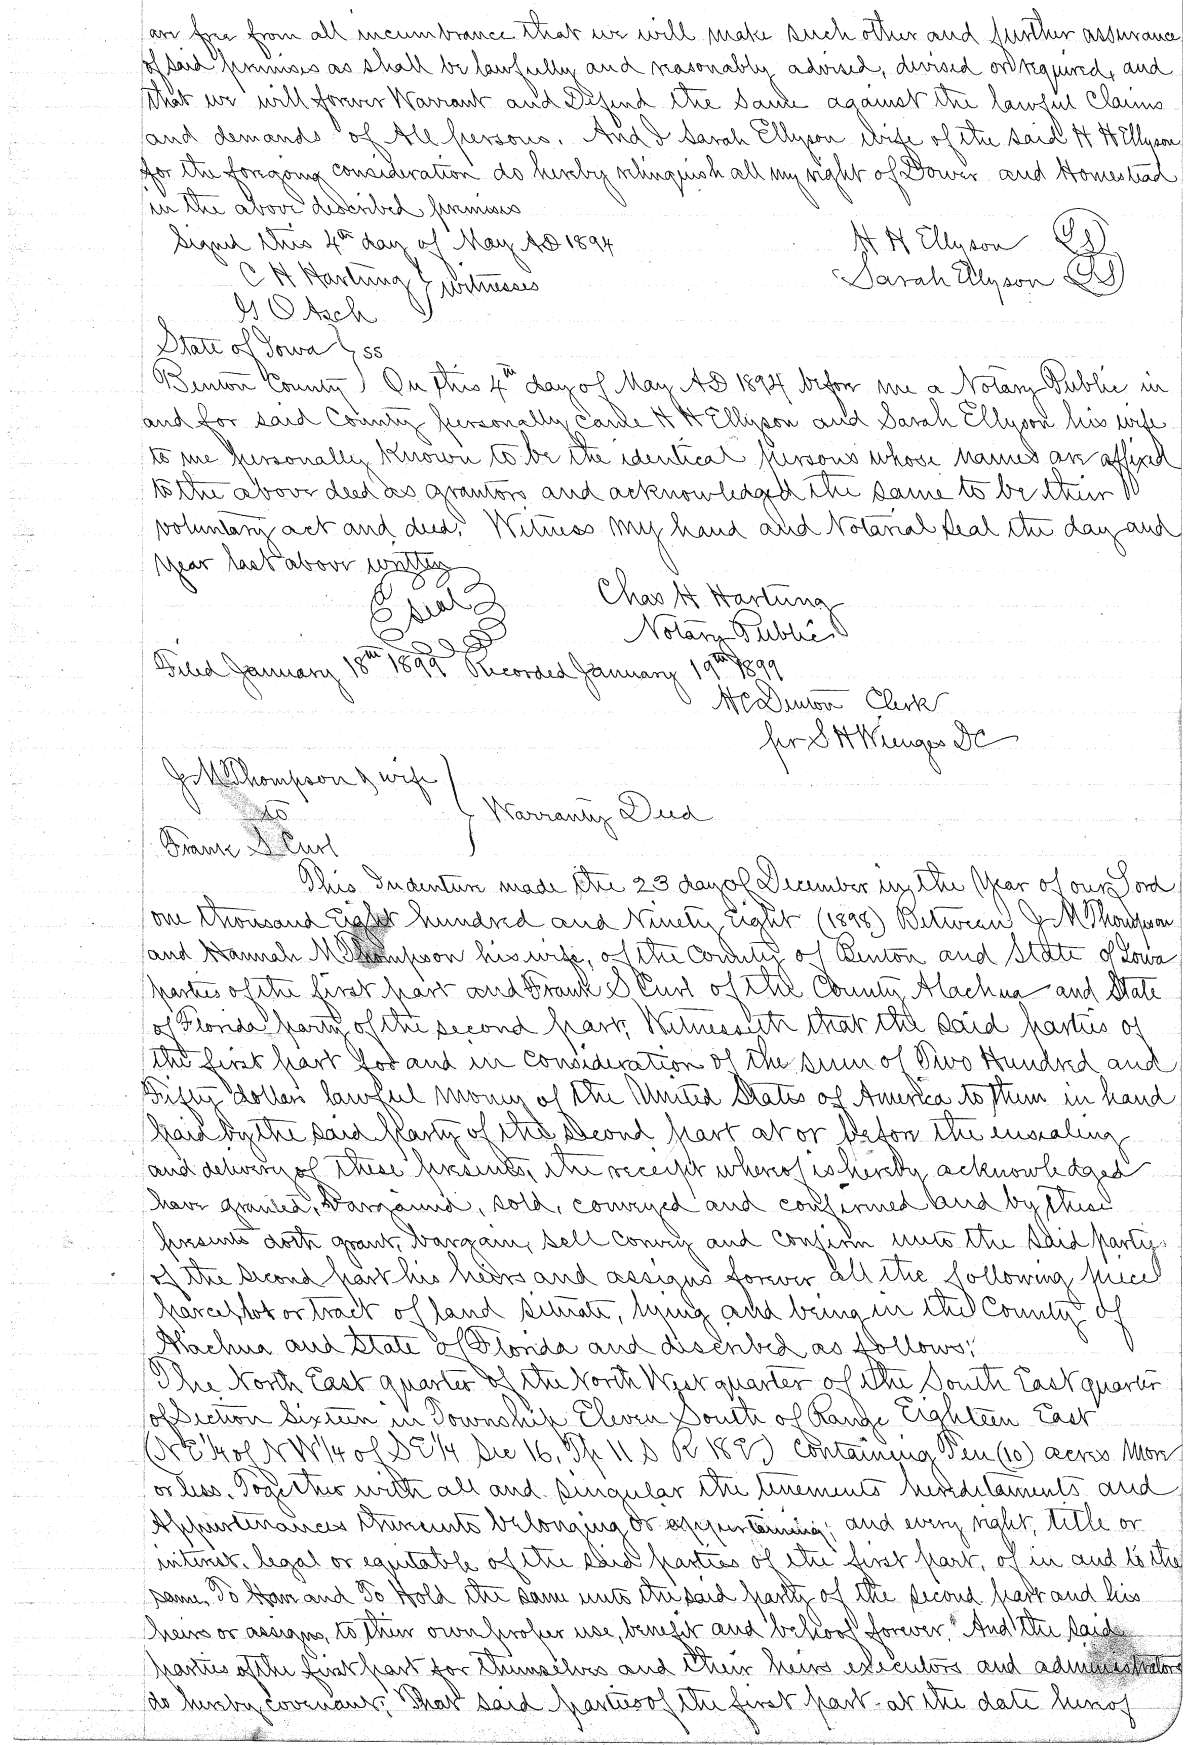 are free from all incumbrance that we will make such other and further assurance
of said premises as shall be lawfully and reasonably advised, devised or required, and
that we will forever Warrant and Defend the same against the lawful Claims
and demands of All persons. And I Sarah Ellyson wife of the said H H Ellyson
for the foregoing consideration do hereby relinquish all my right of Dower and Homestead
in the above described premises
Signed this 4th day of May AD 1894
H H Ellyson LS
C H Hartung } witnesses
Sarah Ellyson LS
G O Asch
State of Iowa } ss
Benton County } On this 4th day of May AD 1894 before me a Notary Public in
and for said County personally came H H Ellyson and Sarah Ellyson his wife
to me personally known to be the identical persons whose names are affixed
to the above deed as grantors and acknowledged the same to be their
voluntary act and deed. Witness my hand and Notarial Seal the day and
year last above written
Seal
Chas H Hartung
Notary Public
Filed January 18th 1899 Recorded January 19th 1899
H C Denton Clerk
per S H Wienges DC
J M Thompson & wife
to } Warranty Deed
Frank S Curl
This Indenture made the 23 day of December in the Year of our Lord
one thousand Eight hundred and Ninety Eight (1898) Between J M Thompson
and Hannah M Thompson his wife, of the County of Benton and State of Iowa
parties of the first part and Frank S Curl of the County Alachua and State
of Florida party of the second part, Witnesseth that the said parties of
the first part for and in consideration of the sum of Two Hundred and
Fifty dollars lawful money of the United States of America to them in hand
paid by the said party of the second part at or before the ensealing
and delivery of these presents, the receipt whereof is hereby acknowledged
have granted, bargained, sold, conveyed and confirmed and by these
presents doth grant, bargain, sell convey and confirm unto the said party
of the second part his heirs and assigns forever all the following piece
parcel, lot or tract of land situate, lying and being in the County of
Alachua and State of Florida and discribed as follows:
The North East quarter of the North West quarter of the South East quarter
of Section Sixteen in Township Eleven South of Range Eighteen East
(NE 1/4 of NW 1/4 of SE 1/4 Sec 16, Tp 11 S R 18 E) containing Ten (10) acres More
or less. Together with all and singular the tenements hereditaments and
Appurtenances thereunto belonging or appurtaining; and every right, title or
interest, legal or equitable of the said parties of the first part, of in and to the
same. To Have and To Hold the same unto the said party of the second part and his
heirs or assigns, to their own proper use, benefit and behoof forever. And the said
parties of the first part for themselves and their heirs executors and administrators
do hereby covenant, That said parties of the first part at the date hereof